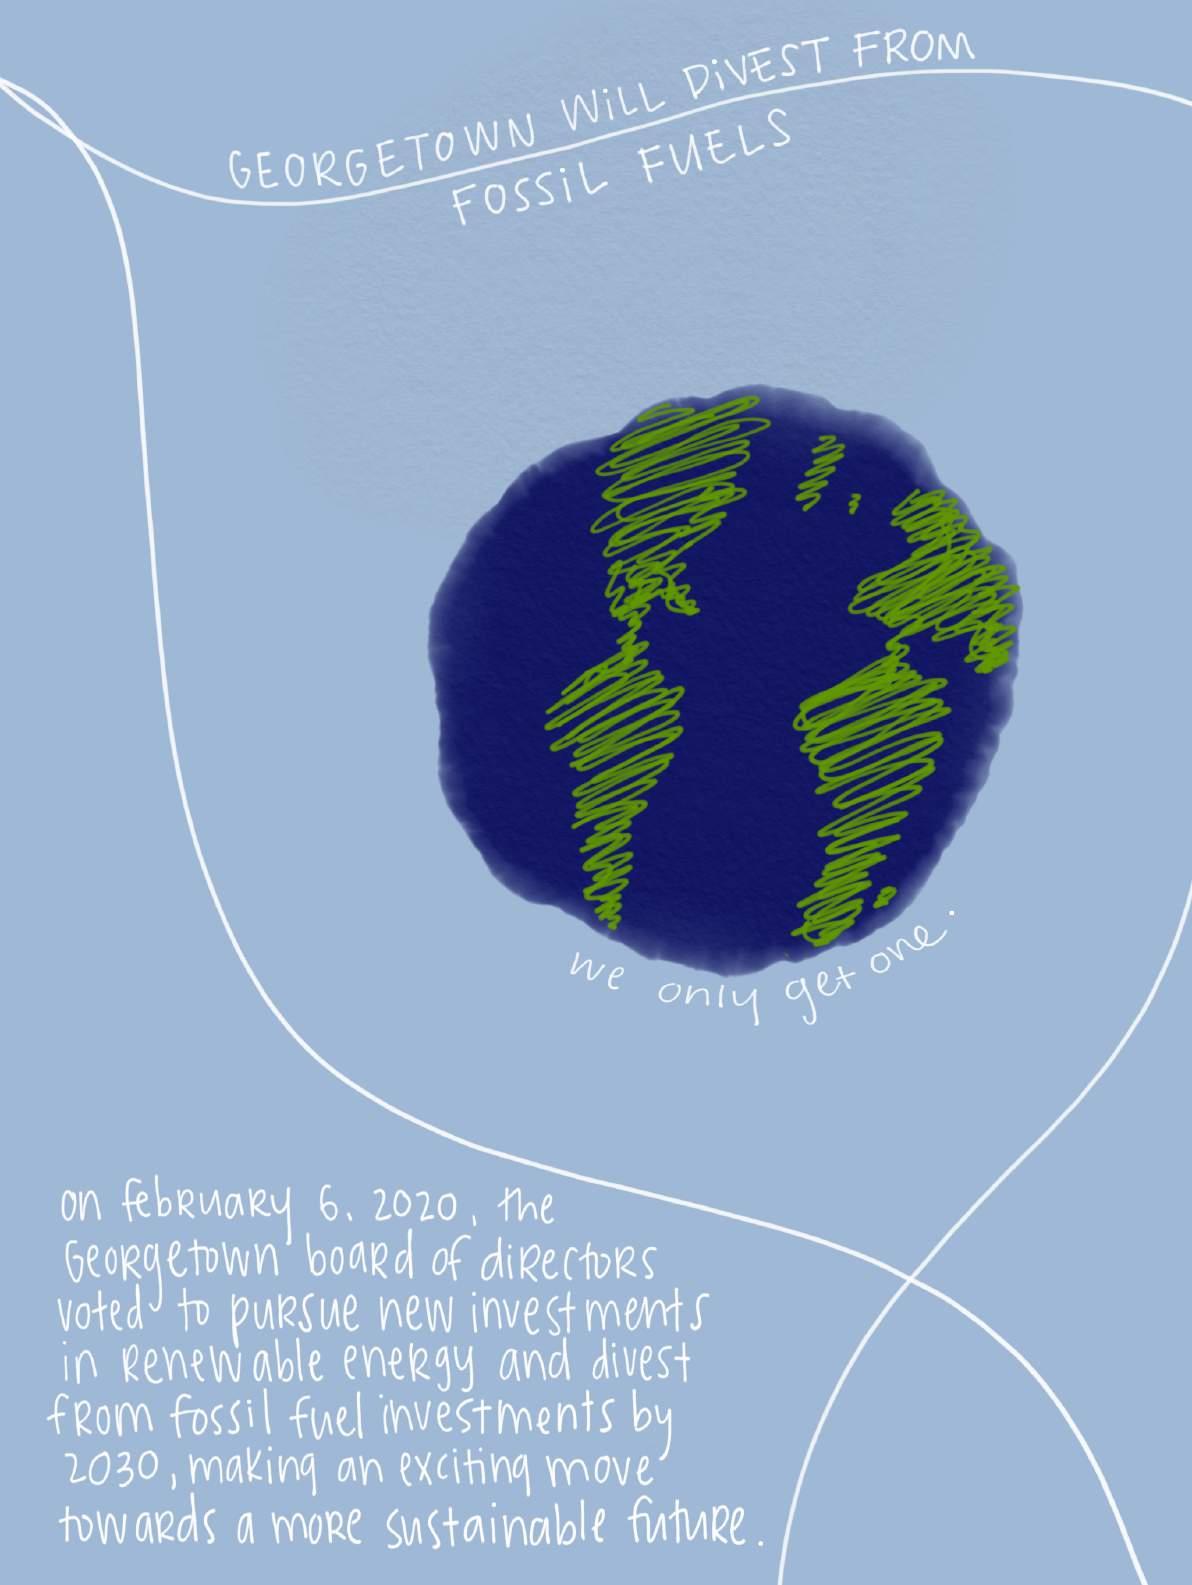 GEORGETOWN WiLL DiVEST FROM
FOSSiL FUELS
we only get one.
on february 6, 2020, the
Georgetown board of directors
voted to pursue new investments
in renewable energy and divest
from fossil fuel investments by
2030, making an exciting move
towards a more sustainable future.